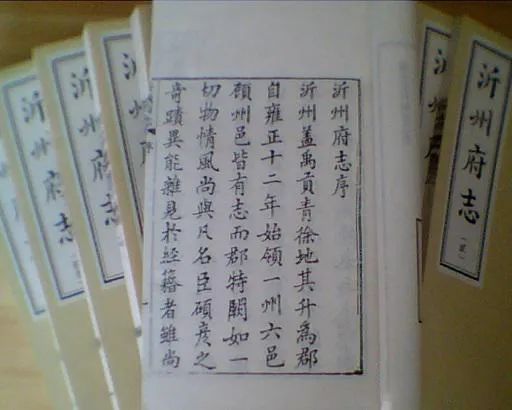 沂州府志序
沂州蓋禹貢青徐地其升為郡
自雍正十二年始領一州六邑
顧州邑皆有志而郡特闕如一
切物情風尚與凡名臣碩彥之
奇蹟異能雜見於經籍者雖尚
沂州府志
沂州府志
沂州府志
沂州
沂州府志